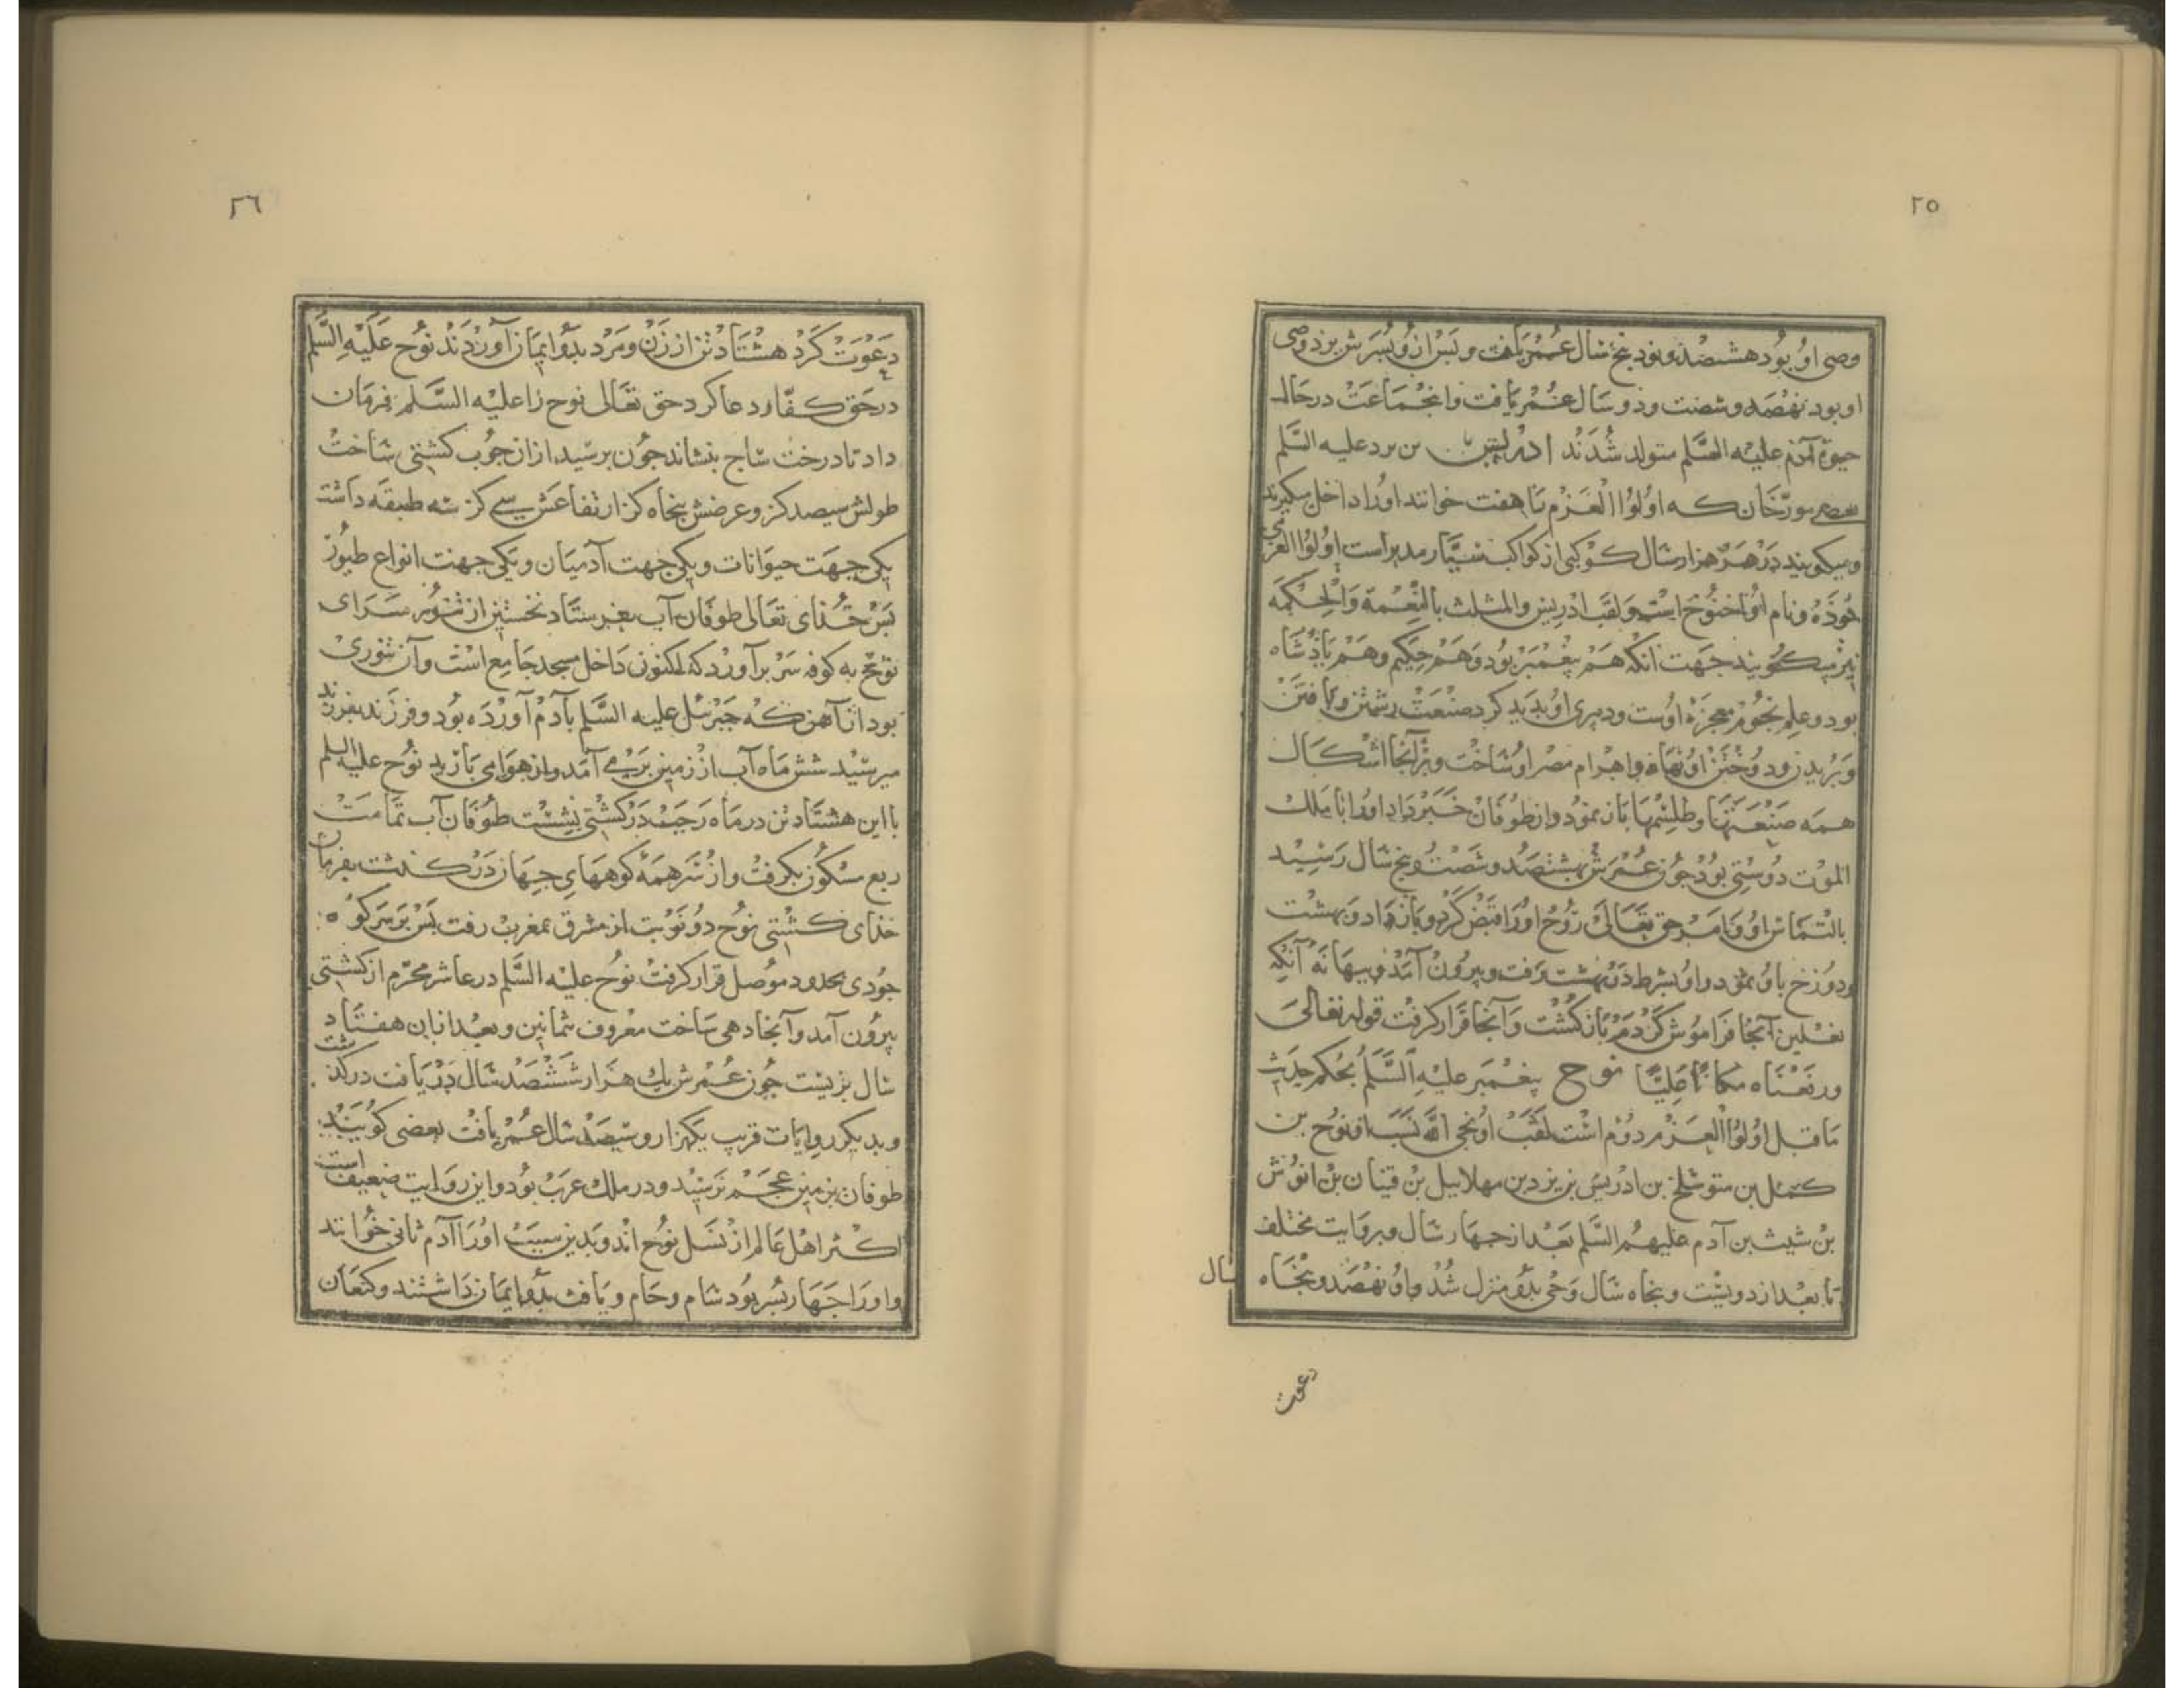 ٢٥
وصی او بود هشصد و نود پنج سال عمر یافت و پس ازو پسرش برد وصی
او بود نهصد و شصت و دو سال عمر یافت و انجماعت در حال
حیوة آدم علیه السلم متولد شدند ادریس بن برد علیه السلم
بعضی مورّخان که اولوا العزم تا هفت خوانند اورا داخل میکیرند
و میکویند در هر هزار سال کوکبی از کواکب سیّار مدبر است اولوا العزمی
بوذه و نام او اخنوخ است و لقب ادریس و المثلث بالنعمة والحکمه
نیز میکویند جهت انکه هم پیغمبر بود و هم حکیم و هم پاذشاه
بود و علم نجوم معجزه اوست و دبیری او بدید کرد صنعت رشتن و بافتن
و بریدن و دوختن او نهاد و اهرام مصر او ساخت و بر آنجا اشکال
همه صنعتها و طلسمها باز نمود و از طوفان خبر داد اورا با ملک
الموت دوستی بود جون عمرش بهشتصد و شصت و پنج سال رسید
بالتماس او و بامر حق تعالی روح اورا قبض کرد و باز داد و بهشت
و دوزخ باو نمود و او بشرط در بهشت رفت و بیرون آمد و ببهانه آنکه
نعلین آنجا فراموش کردم باز کشت و آنجا قرار کرفت قوله تعالی
ورفعناه مکانا علیّا نوح پیغمبر علیه السلم بحکم حدیث
ما قبل اولوا العزم دوم است لقب او نجی الله نسب او نوح بن
کمل بن متوشلخ بن ادریس بن یزد بن مهلابیل بن قینان بن انوش
بن شیث بن آدم علیهم السلم بعد از جهار سال و بروایت مختلف
تا بعد از دویست و بنجاه سال وحی بدو منزل شد و او نهصد و بنجاه
سال
دعوت
٢٦
دعوت کرد هشتاد تن از زن و مرد بدو ایمان آوردند نوح علیه السلم
در حق کفّار دعا کرد حق تعالی نوح را علیه السلم فرمان
داد تا درخت ساج بنشاند جون برسید از ان جوب کشتی ساخت
طولش سیصد کز و عرضش پنجاه کز ارتفاعش سی کز سه طبقه داشت
یکی جهت حیوانات و یکی جهت آدمیان و یکی جهت انواع طیور
پس خذای تعالی طوفان آب بفرستاد نخستین از تنور سرای
نوح به کوفه سر برآورد که اکنون داخل مسجد جامع است و آن تنوری
بود از آهن که جبرئیل علیه السلم بآدم آورده بود و فرزند بفرزند
میرسید شش ماه آب از زمین بر می آمد و از هوا می بارید نوح علیه السلم
با این هشتاد تن در ماه رجب در کشتی نشست طوفان آب تمامت
ربع مسکون بکرفت و از سر همه کوههای جهان درکذشت بفرمان
خذای کشتی نوح دو نوبت از مشرق بمغرب رفت پس بر سر کوه
جودی بحدود موصل قرار کرفت نوح علیه السلم در عاشر محرّم از کشتی
بیرون آمد و آنجا دهی ساخت معروف ثمانین و بعد از ان هفتاد
سال بزیست جون عمرش یک هزار ششصد سال دریافت درکذشت
و بدیکر روایات قریب یکهزار و سیصد سال عمر یافت بعضی کویند
طوفان بزمین عجم نرسید و در ملک عرب بود و این روایت ضعیف است
اکثر اهل عالم از نسل نوح اند و بدین سبب اورا آدم ثانی خوانند
و اورا جهار پسر بود سام و حام و یافث بدو ایمان داشتند و کنعان